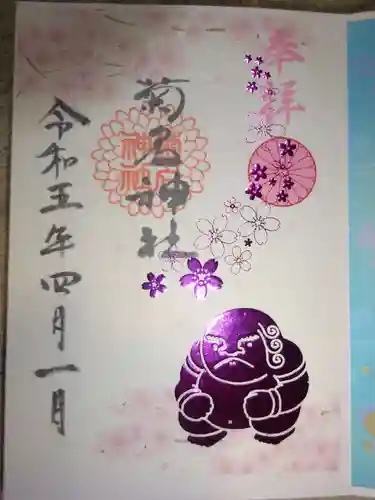 奉拝
菊名神社
令和五年四月一日